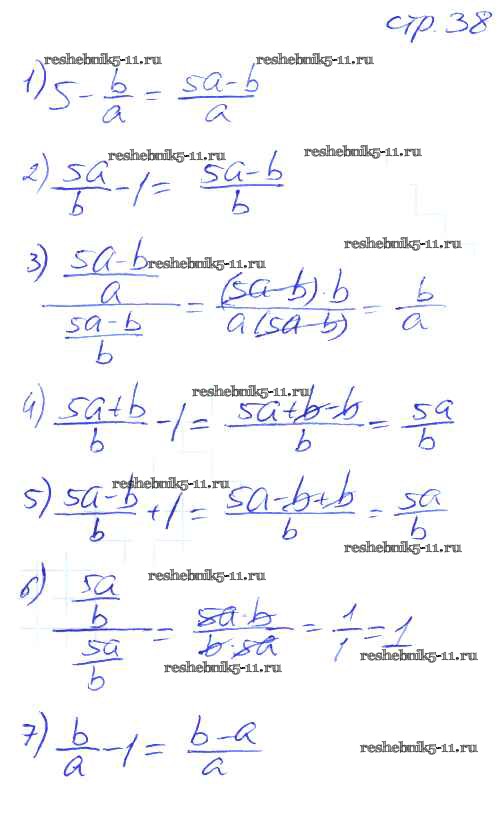 стр. 38
reshebnik5-11.ru reshebnik5-11.ru
1) 5 - b/a = (5a-b)/a
reshebnik5-11.ru reshebnik5-11.ru
2) 5a/b - 1 = (5a-b)/b
reshebnik5-11.ru
reshebnik5-11.ru
3) ((5a-b)/a)/((5a-b)/b) = ((5a-b)·b)/(a(5a-b)) = b/a
reshebnik5-11.ru
4) (5a+b)/b - 1 = (5a+b-b)/b = 5a/b
reshebnik5-11.ru
5) (5a-b)/b + 1 = (5a-b+b)/b = 5a/b
reshebnik5-11.ru
reshebnik5-11.ru
6) (5a/b)/(5a/b) = (5a·b)/(b·5a) = 1/1 = 1
reshebnik5-11.ru
reshebnik5-11.ru
7) b/a - 1 = (b-a)/a
reshebnik5-11.ru